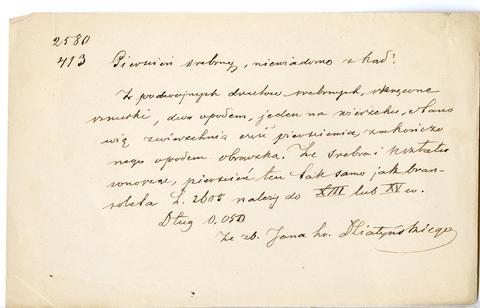 2580
413 Pierścień srebrny, niewiadomo zkąd!
Z podwójnych drutów srebrnych, skręcone
sznurki, dwa spodem, jeden na wierzchu, stano
wią zwierzchnią część pierścienia, zakończo
nego spodem obrączką. Ze srebra i kształtu
wnosząc, pierścień ten tak samo jak bran-
soleta L. 2605 należy do XIII lub XV w.
Dług 0,050
Ze zb. Jana hr. Działyńskiego